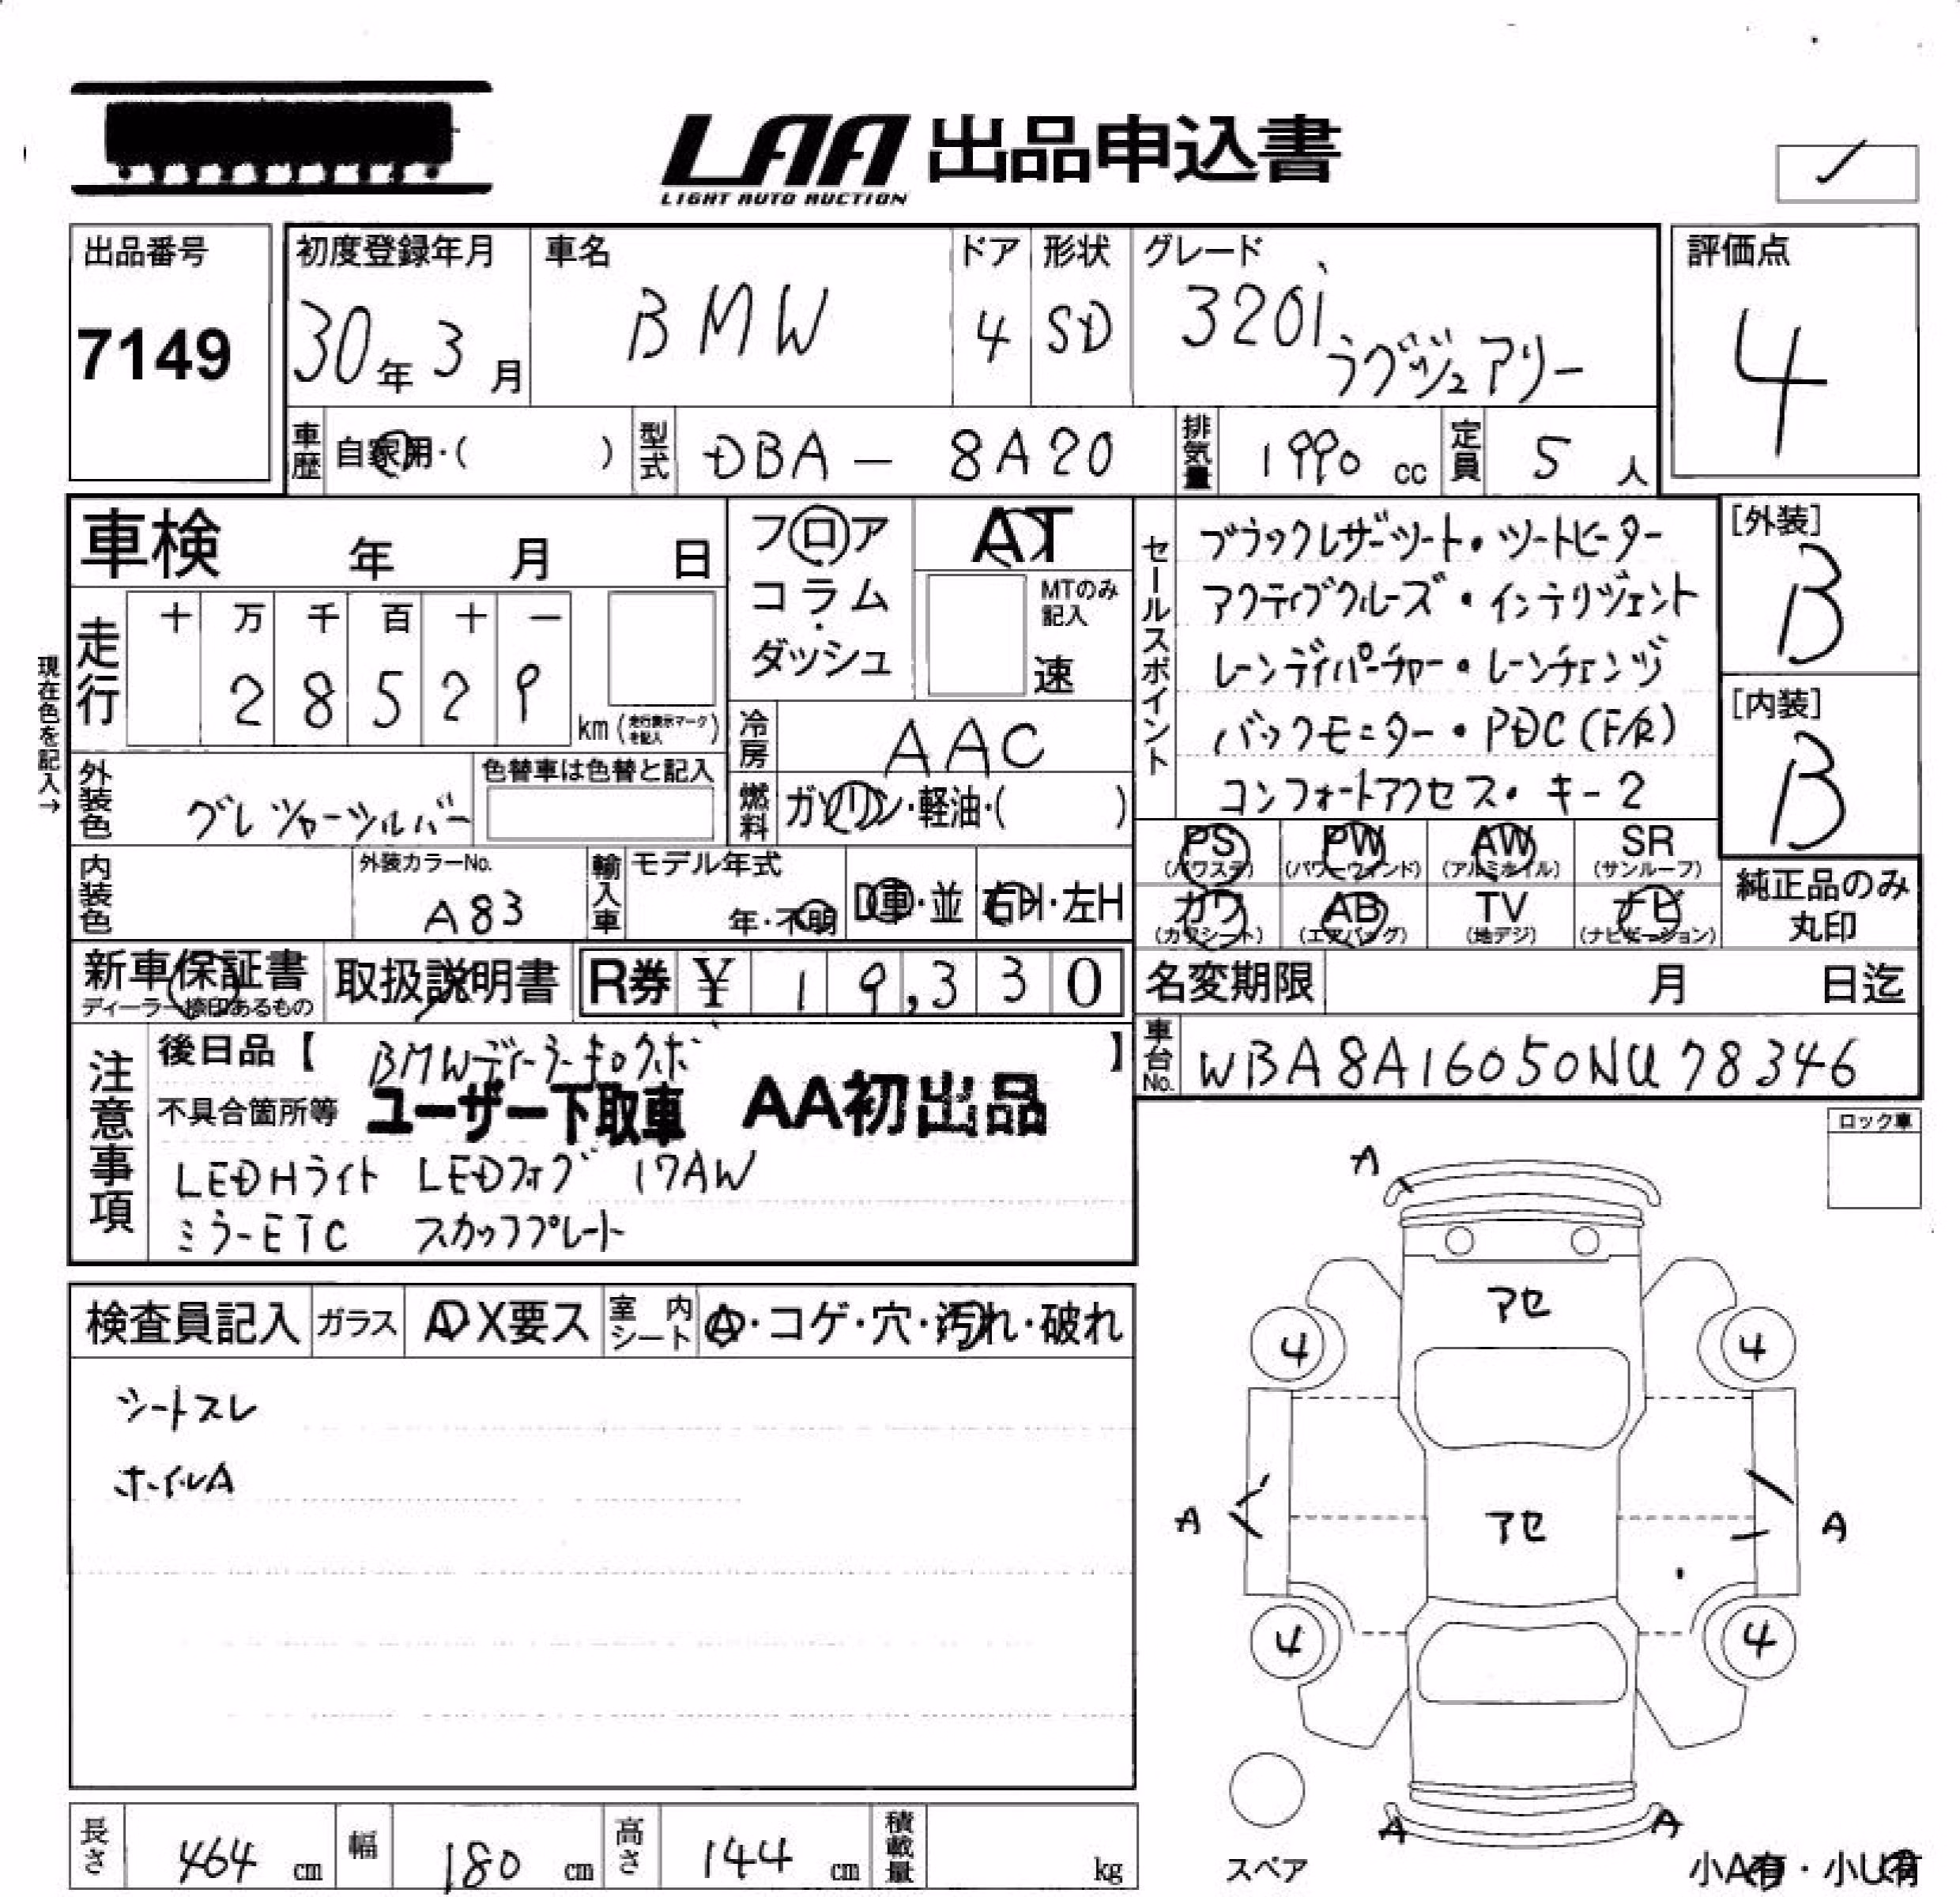 LAA 出品申込書
LIGHT AUTO AUCTION
出品番号
7149
初度登録年月
30年 3月
車名
BMW
ドア
4
形状
SD
グレード
320i
ラグジュアリー
評価点
4
車歴
自家用・( )
型式
DBA - 8A20
排気量
1990 cc
定員
5 人
車検 年 月 日
フロア
コラム
ダッシュ
AT
MTのみ
記入
速
セールスポイント
ブラックレザーシート・シートヒーター
アクティブクルーズ・インテリジェント
レーンディパーチャー・レーンチェンジ
バックモニター・PDC(F/R)
コンフォートアクセス・キー2
[外装]
B
[内装]
B
現在色を記入→
走行
十 万 千 百 十 一
2 8 5 2 9
km (走行表示マークを記入)
冷房
AAC
燃料
ガソリン・軽油・( )
外装色
グレシャーシルバー
色替車は色替と記入
内装色
外装カラーNo.
A83
輸入車
モデル年式
年・不明
D車・並
右H・左H
PS
(パワステ)
PW
(パワーウィンド)
AW
(アルミホイル)
SR
(サンルーフ)
カワ
(カワシート)
AB
(エアバッグ)
TV
(地デジ)
ナビ
(ナビゲーション)
純正品のみ
丸印
新車保証書
ディーラー捺印あるもの
取扱説明書
R券 ¥ 19,330
名変期限 月 日迄
車台No.
WBA8A16050NU78346
注意事項
後日品【 BMWディーラーキロクボ 】
不具合箇所等
ユーザー下取車 AA初出品
LEDHライト LEDフォグ 17AW
ミラーETC スカッフプレート
ロック車
検査員記入
ガラス
A X要ス
室内シート
A・コゲ・穴・汚れ・破れ
シートスレ
ホイルA
A
アセ
4
4
A
アセ
A
4
4
A
A
スペア
小A有・小U有
長さ
464 cm
幅
180 cm
高さ
144 cm
積載量
kg